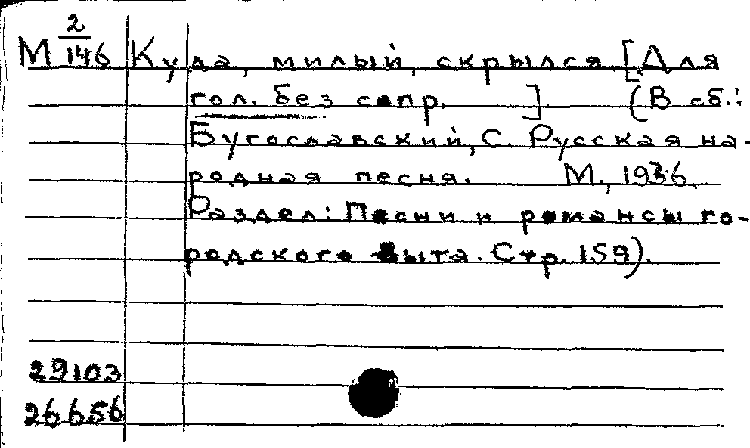 М 2/146 Куда, милый, скрылся [Для
гол. без сопр. ]. (В сб.:
Бугославский, С. Русская на-
родная песня. М., 1936.
Раздел: Песни и романсы го-
родского быта. Стр. 159).
29103
26656